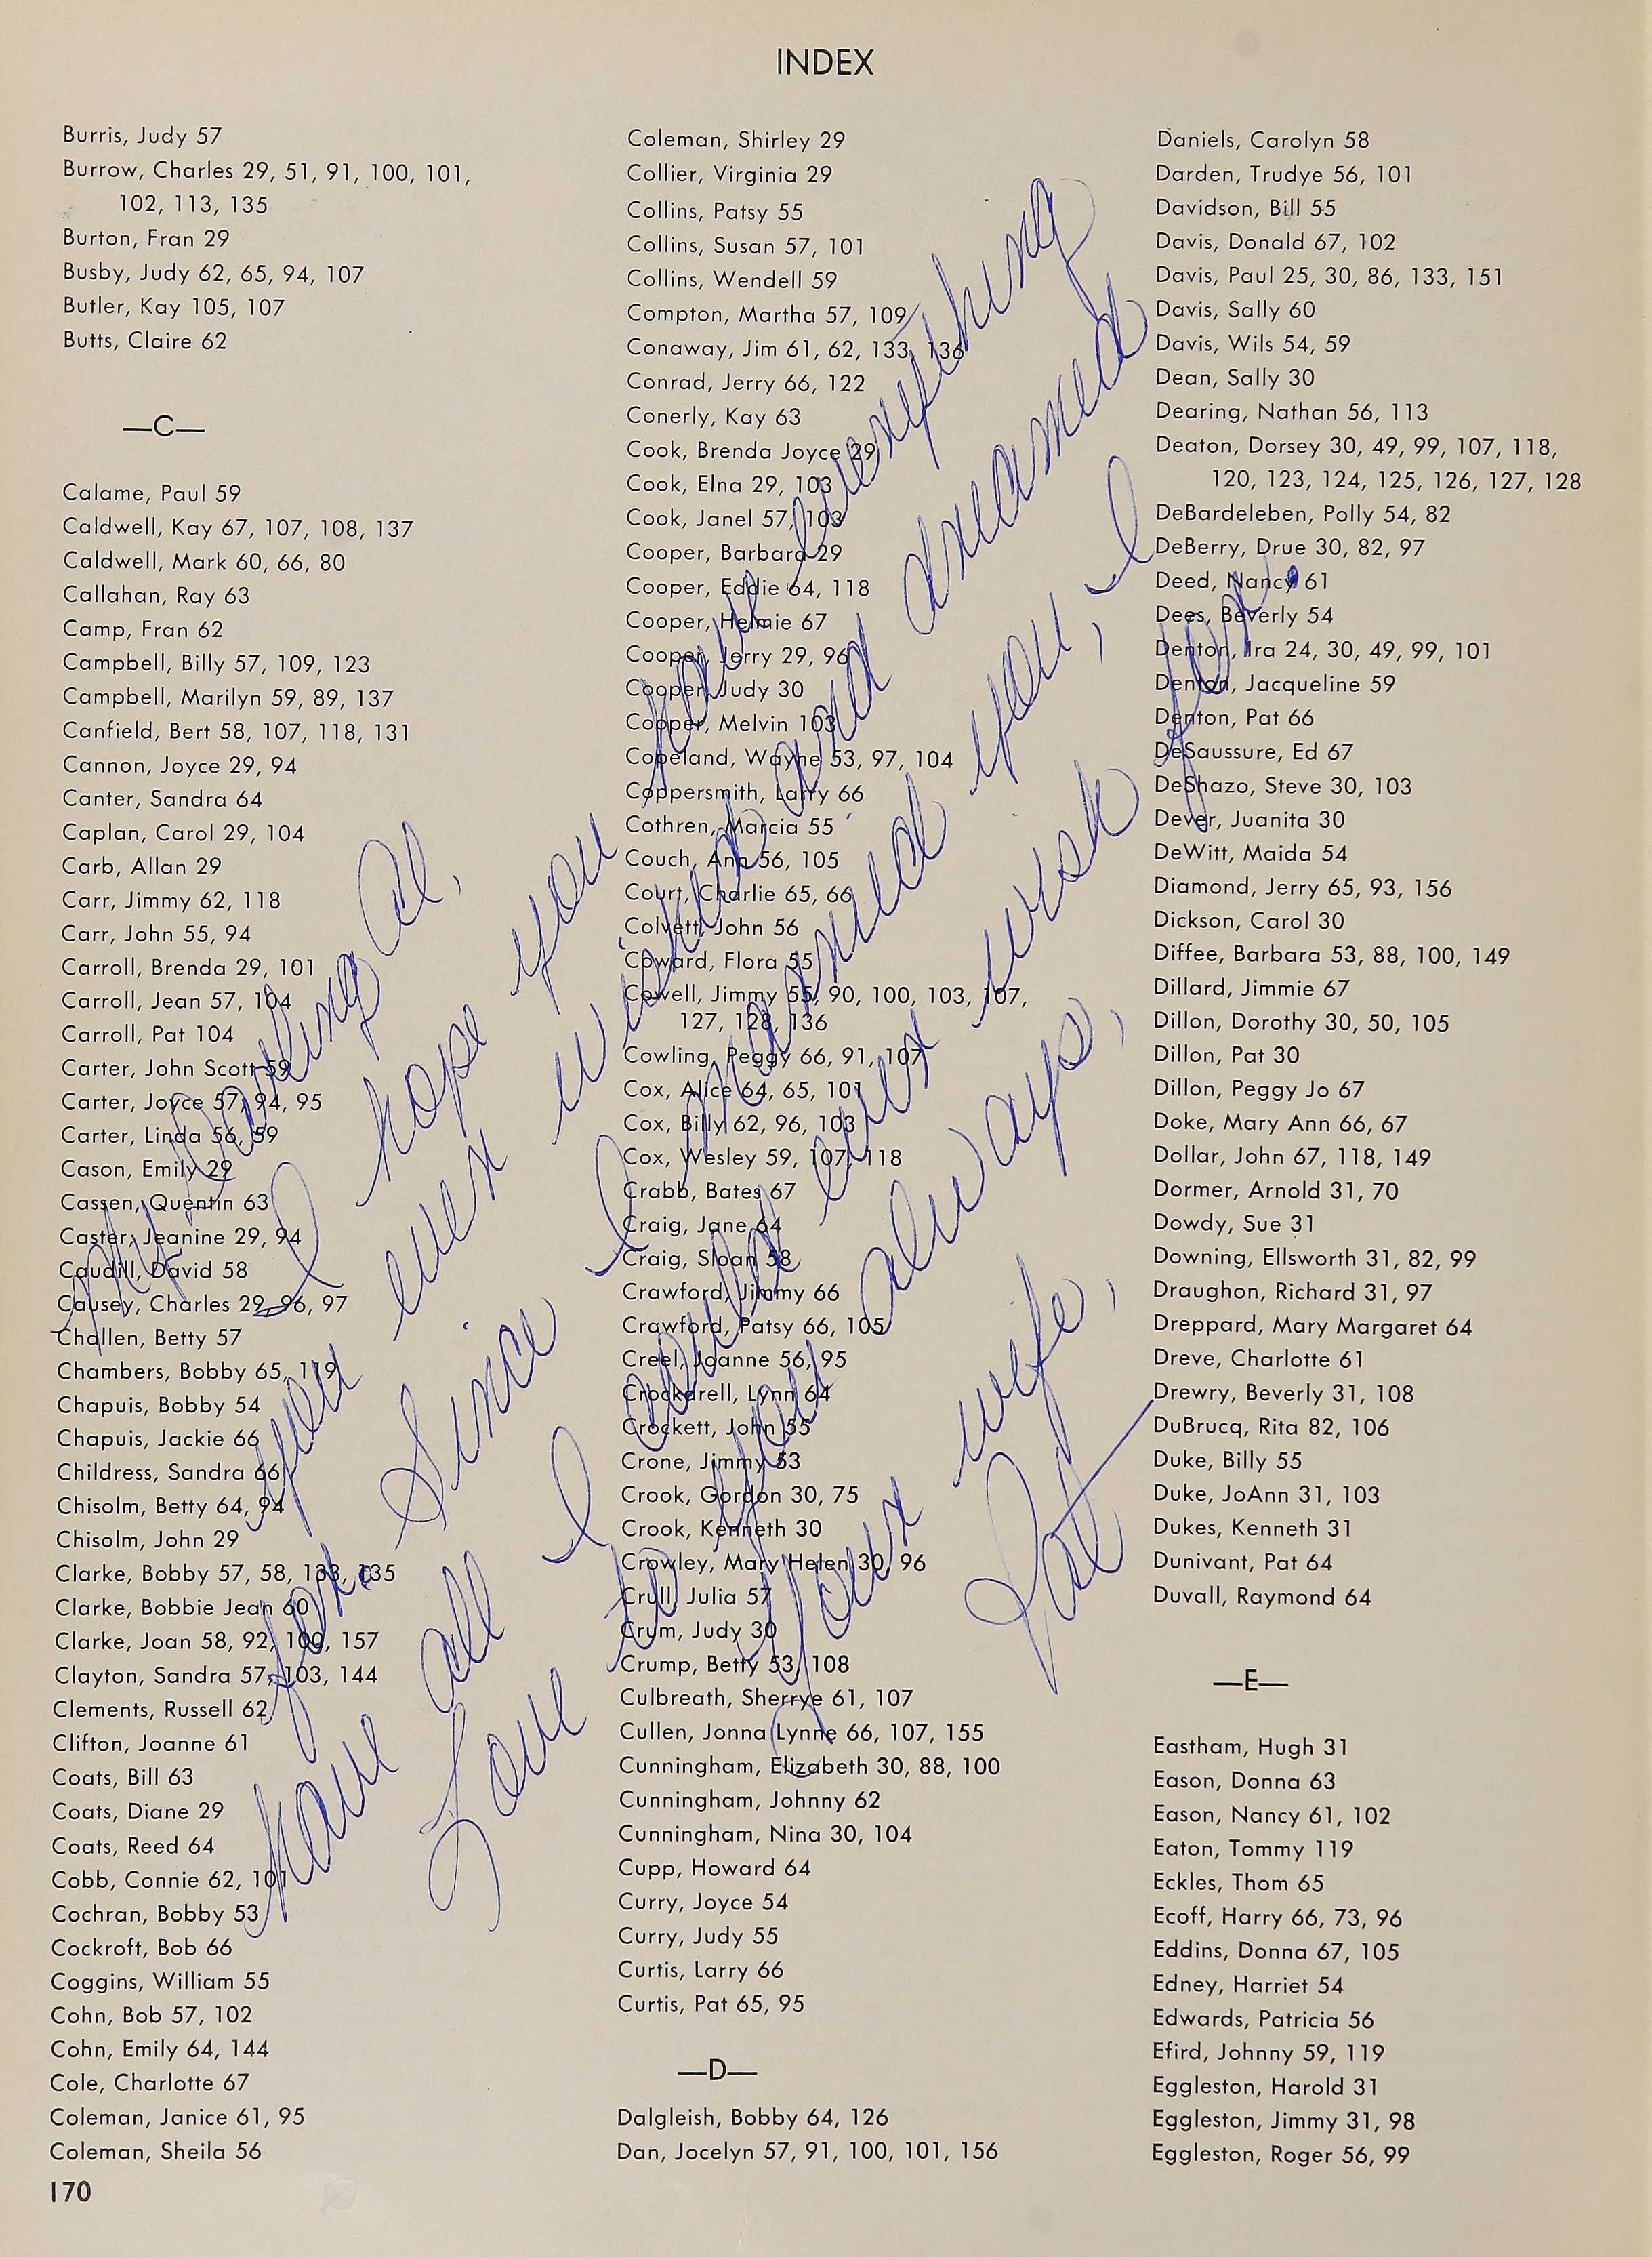 INDEX
Burris, Judy 57
Burrow, Charles 29, 51, 91, 100, 101,
102, 113, 135
Burton, Fran 29
Busby, Judy 62, 65, 94, 107
Butler, Kay 105, 107
Butts, Claire 62
—C—
Calame, Paul 59
Caldwell, Kay 67, 107, 108, 137
Caldwell, Mark 60, 66, 80
Callahan, Ray 63
Camp, Fran 62
Campbell, Billy 57, 109, 123
Campbell, Marilyn 59, 89, 137
Canfield, Bert 58, 107, 118, 131
Cannon, Joyce 29, 94
Canter, Sandra 64
Caplan, Carol 29, 104
Carb, Allan 29
Carr, Jimmy 62, 118
Carr, John 55, 94
Carroll, Brenda 29, 101
Carroll, Jean 57, 104
Carroll, Pat 104
Carter, John Scott 59
Carter, Joyce 57, 94, 95
Carter, Linda 56, 59
Cason, Emily 29
Cassen, Quentin 63
Caster, Jeanine 29, 94
Caudill, David 58
Causey, Charles 29, 96, 97
Challen, Betty 57
Chambers, Bobby 65, 119
Chapuis, Bobby 54
Chapuis, Jackie 66
Childress, Sandra 66
Chisolm, Betty 64, 94
Chisolm, John 29
Clarke, Bobby 57, 58, 133, 135
Clarke, Bobbie Jean 60
Clarke, Joan 58, 92, 100, 157
Clayton, Sandra 57, 103, 144
Clements, Russell 62
Clifton, Joanne 61
Coats, Bill 63
Coats, Diane 29
Coats, Reed 64
Cobb, Connie 62, 101
Cochran, Bobby 53
Cockroft, Bob 66
Coggins, William 55
Cohn, Bob 57, 102
Cohn, Emily 64, 144
Cole, Charlotte 67
Coleman, Janice 61, 95
Coleman, Sheila 56
Coleman, Shirley 29
Collier, Virginia 29
Collins, Patsy 55
Collins, Susan 57, 101
Collins, Wendell 59
Compton, Martha 57, 109
Conaway, Jim 61, 62, 133, 136
Conrad, Jerry 66, 122
Conerly, Kay 63
Cook, Brenda Joyce 29
Cook, Elna 29, 103
Cook, Janel 57, 103
Cooper, Barbara 29
Cooper, Eddie 64, 118
Cooper, Helmie 67
Cooper, Jerry 29, 96
Cooper, Judy 30
Cooper, Melvin 103
Copeland, Wayne 53, 97, 104
Coppersmith, Larry 66
Cothren, Marcia 55
Couch, Ann 56, 105
Court, Charlie 65, 66
Colvett, John 56
Coward, Flora 55
Cowell, Jimmy 55, 90, 100, 103, 107,
127, 128, 136
Cowling, Peggy 66, 91, 107
Cox, Alice 64, 65, 101
Cox, Billy 62, 96, 103
Cox, Wesley 59, 107, 118
Crabb, Bates 67
Craig, Jane 64
Craig, Sloan 58
Crawford, Jimmy 66
Crawford, Patsy 66, 105
Creel, Joanne 56, 95
Crockarell, Lynn 64
Crockett, John 55
Crone, Jimmy 53
Crook, Gordon 30, 75
Crook, Kenneth 30
Crowley, Mary Helen 30, 96
Crull, Julia 57
Crum, Judy 30
Crump, Betty 53, 108
Culbreath, Sherrye 61, 107
Cullen, Jonna Lynne 66, 107, 155
Cunningham, Elizabeth 30, 88, 100
Cunningham, Johnny 62
Cunningham, Nina 30, 104
Cupp, Howard 64
Curry, Joyce 54
Curry, Judy 55
Curtis, Larry 66
Curtis, Pat 65, 95
—D—
Dalgleish, Bobby 64, 126
Dan, Jocelyn 57, 91, 100, 101, 156
Daniels, Carolyn 58
Darden, Trudye 56, 101
Davidson, Bill 55
Davis, Donald 67, 102
Davis, Paul 25, 30, 86, 133, 151
Davis, Sally 60
Davis, Wils 54, 59
Dean, Sally 30
Dearing, Nathan 56, 113
Deaton, Dorsey 30, 49, 99, 107, 118,
120, 123, 124, 125, 126, 127, 128
DeBardeleben, Polly 54, 82
DeBerry, Drue 30, 82, 97
Deed, Nancy 61
Dees, Beverly 54
Denton, Ira 24, 30, 49, 99, 101
Denton, Jacqueline 59
Denton, Pat 66
DeSaussure, Ed 67
DeShazo, Steve 30, 103
Dever, Juanita 30
DeWitt, Maida 54
Diamond, Jerry 65, 93, 156
Dickson, Carol 30
Diffee, Barbara 53, 88, 100, 149
Dillard, Jimmie 67
Dillon, Dorothy 30, 50, 105
Dillon, Pat 30
Dillon, Peggy Jo 67
Doke, Mary Ann 66, 67
Dollar, John 67, 118, 149
Dormer, Arnold 31, 70
Dowdy, Sue 31
Downing, Ellsworth 31, 82, 99
Draughon, Richard 31, 97
Dreppard, Mary Margaret 64
Dreve, Charlotte 61
Drewry, Beverly 31, 108
DuBrucq, Rita 82, 106
Duke, Billy 55
Duke, JoAnn 31, 103
Dukes, Kenneth 31
Dunivant, Pat 64
Duvall, Raymond 64
—E—
Eastham, Hugh 31
Eason, Donna 63
Eason, Nancy 61, 102
Eaton, Tommy 119
Eckles, Thom 65
Ecoff, Harry 66, 73, 96
Eddins, Donna 67, 105
Edney, Harriet 54
Edwards, Patricia 56
Efird, Johnny 59, 119
Eggleston, Harold 31
Eggleston, Jimmy 31, 98
Eggleston, Roger 56, 99
170
My Darling Al,
I hope you have everything
you ever wished and dreamed
for. Since I married you, I
have all I could ever wish for.
Love to you always,
Your wife,
Pat